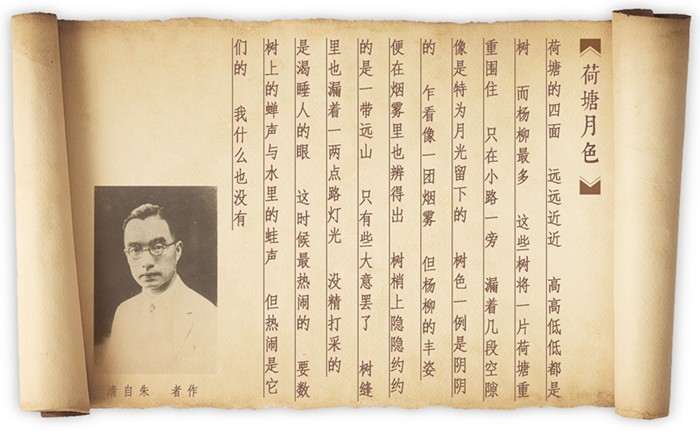 荷塘月色
荷塘的四面 远远近近 高高低低都是
树 而杨柳最多 这些树将一片荷塘重
重围住 只在小路一旁 漏着几段空隙
像是特为月光留下的 树色一例是阴阴
的 乍看像一团烟雾 但杨柳的丰姿
便在烟雾里也辨得出 树梢上隐隐约约
的是一带远山 只有些大意罢了 树缝
里也漏着一两点路灯光 没精打采的
是渴睡人的眼 这时候最热闹的 要数
树上的蝉声与水里的蛙声 但热闹是它
们的 我什么也没有
作者 朱自清